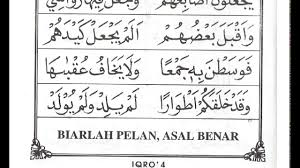 يَجْعَلُونَ أَصَابِعَهُمْ
وَأَقْبَلَ بَعْضُهُمْ اَلَمْ يَجْعَلْ كَيْدَهُمْ
فَوَسَطْنَ بِهٖ جَمْعًا وَلَا يَخَافُ عُقْبٰهَا
وَقَدْ خَلَقَكُمْ اَطْوَارًا لَمْ يَلِدْ وَلَمْ يُولَدْ
BIARLAH PELAN, ASAL BENAR
IQRO' 4